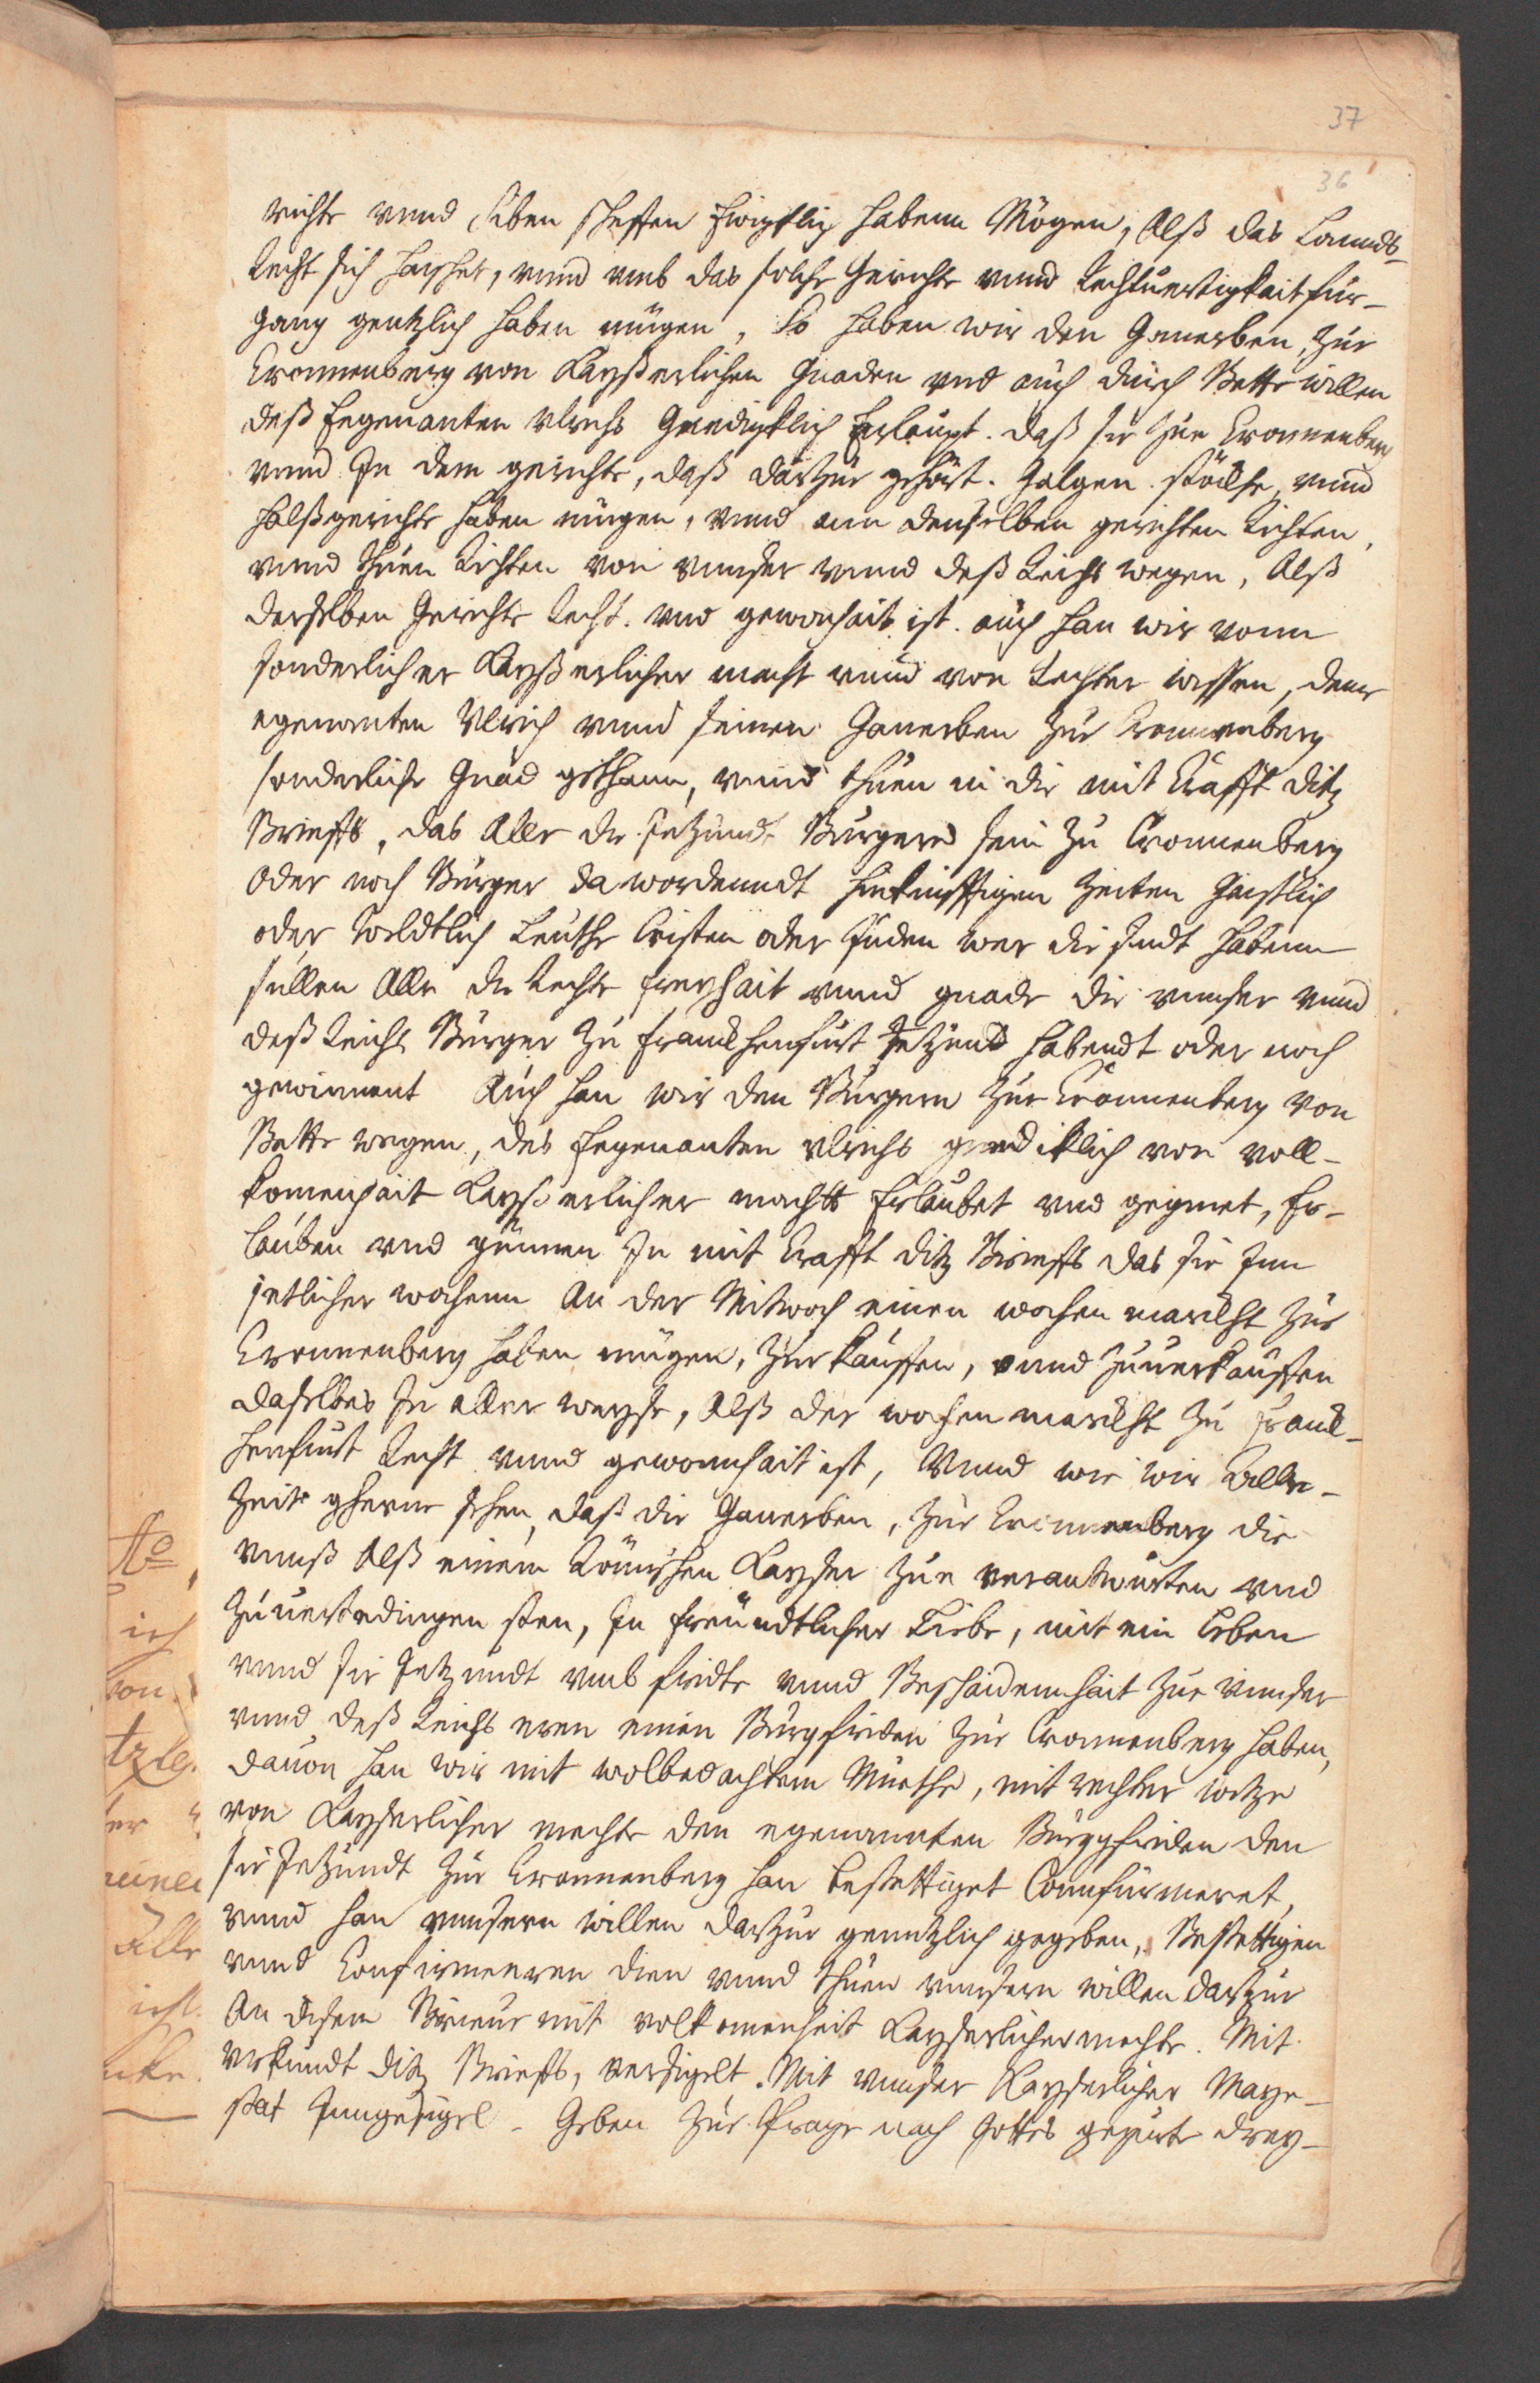 37
36
richte vnnd siben scheffen Ewigklig habenn Mögen, Alß das Lannds-
recht sich haischet, vnnd vmb das solche Gerichte vnnd Rechtuertigkait für-
gang gentzlich haben mügen, So haben wir den Ganerben, zur
Cronnenberg von Kayßerlichen Gnaden vnd auch durch Bette willen
deß Eegenanten vlrichs Gnedigklich Erlaupt. daß sie zue Cronnenberg
vnnd In dem gerichte, daß darzue gehört. Galgen. stöckhe vnnd
halßgerichte haben mügen, vnnd ann denselben gerichten Richten,
vnnd thuen Richten von vnnser vnnd deß Reichs wegen, Alß
derselben Gerichte Recht. vnd gewonhait ist. auch han wir vonn
sonderlicher Kayßerlicher macht vnnd von Rechter wissen, dem
egenanten Vlrich vnnd seinen Ganerben zue Cronnenberg
sonderliche Gnad gethann, vnnd thuen in die mit Krafft ditz
Brieffs, das Alle die Jetzund Burgere sein zu Cronnenberg
oder noch Burger da wordenndt hinkunfftigen Zeiten Gaistlich
oder Weldtlich Leuthe Cristen oder Juden wer die sindt habenn
sullen Alle die Rechte freyhait vnnd gnade die vnnser vnnd
deß Reichs Burger zu Franckhenfurt Jetzund habendt oder noch
gewinnent Auch han wir den Burgern zue Cronnenberg von
Bette wegen, des Eegenanten vlrichs gnediklich von voll-
komenhait Kayßerlicher machtt Erlaubet vnd gegunet, Er-
lauben vnd günnen In mit Krafft ditz Brieffs das sie Inn
jetlicher wochenn An der Mitwoch einen wochen marckht zue
Cronnenberg haben mügen, zue kauffen, vnnd zuuerkauffen
daselbes In aller weyse, Alß der wochen marckht zu Franck-
henfurt Recht vnnd gewonnhait ist, Vnnd wie wir Alle-
Zeit gherne sehen, daß die Ganerben, zue Cronnenberg die
vnnß Alß einem Römischen Kayser zue verantwurten vnd
zuuertedingen sten, In freundtlicher Liebe, mit ein Leben
vnnd sie Jetzundt vmb fridte vnnd Beschaidennhait zue vnnser
vnnd deß Reichs eren einen Burgfriden zue Cronnenberg haben,
dauon han wir mit wolbedachtem Muethe, mit rechter witze
von Kayserlicher machte den egenannten Burggfriden den
sie Jetzundt zue Cronnenberg han bestettiget Connfürmeret,
vnnd han vnnsern willen darzue genntzlich gegeben, Bestettigen
vnnd Confirmeeren dien vnnd thuen vnnsern willen darzue
An disem Brieue mit volkomenheit Kayserlicher machte. Mit
vrkundt ditz Brieffs, versigelt. Mit vnnser Kayserlicher Maye-
stat Inngesigel - Geben zue Prage nach Gottes gepurte drey-